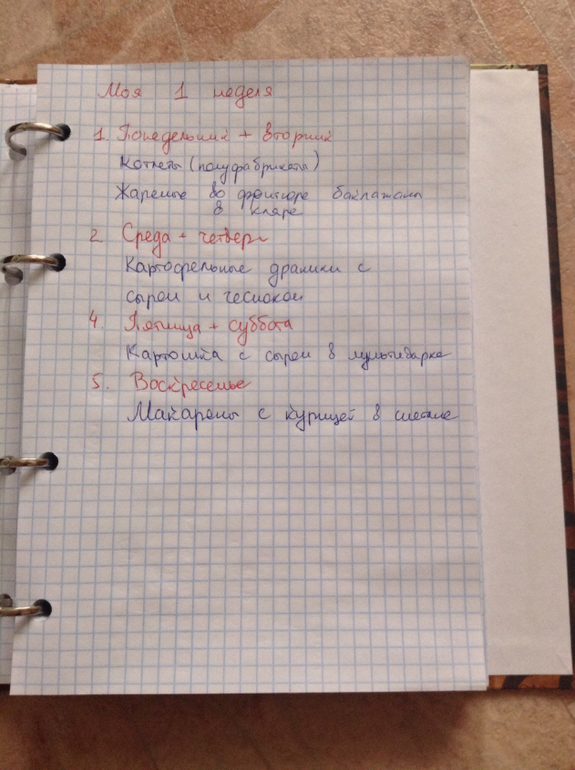 Моя 1 неделя
1. Понедельник + вторник
Котлеты (полуфабрикаты)
Жареные во фритюре баклажаны
в кляре
2 Среда + четверг
Картофельные драники с
сыром и чесноком
4. Пятница + суббота
Картошка с сыром в мультиварке
5. Воскресенье
Макароны с курицей в сметане